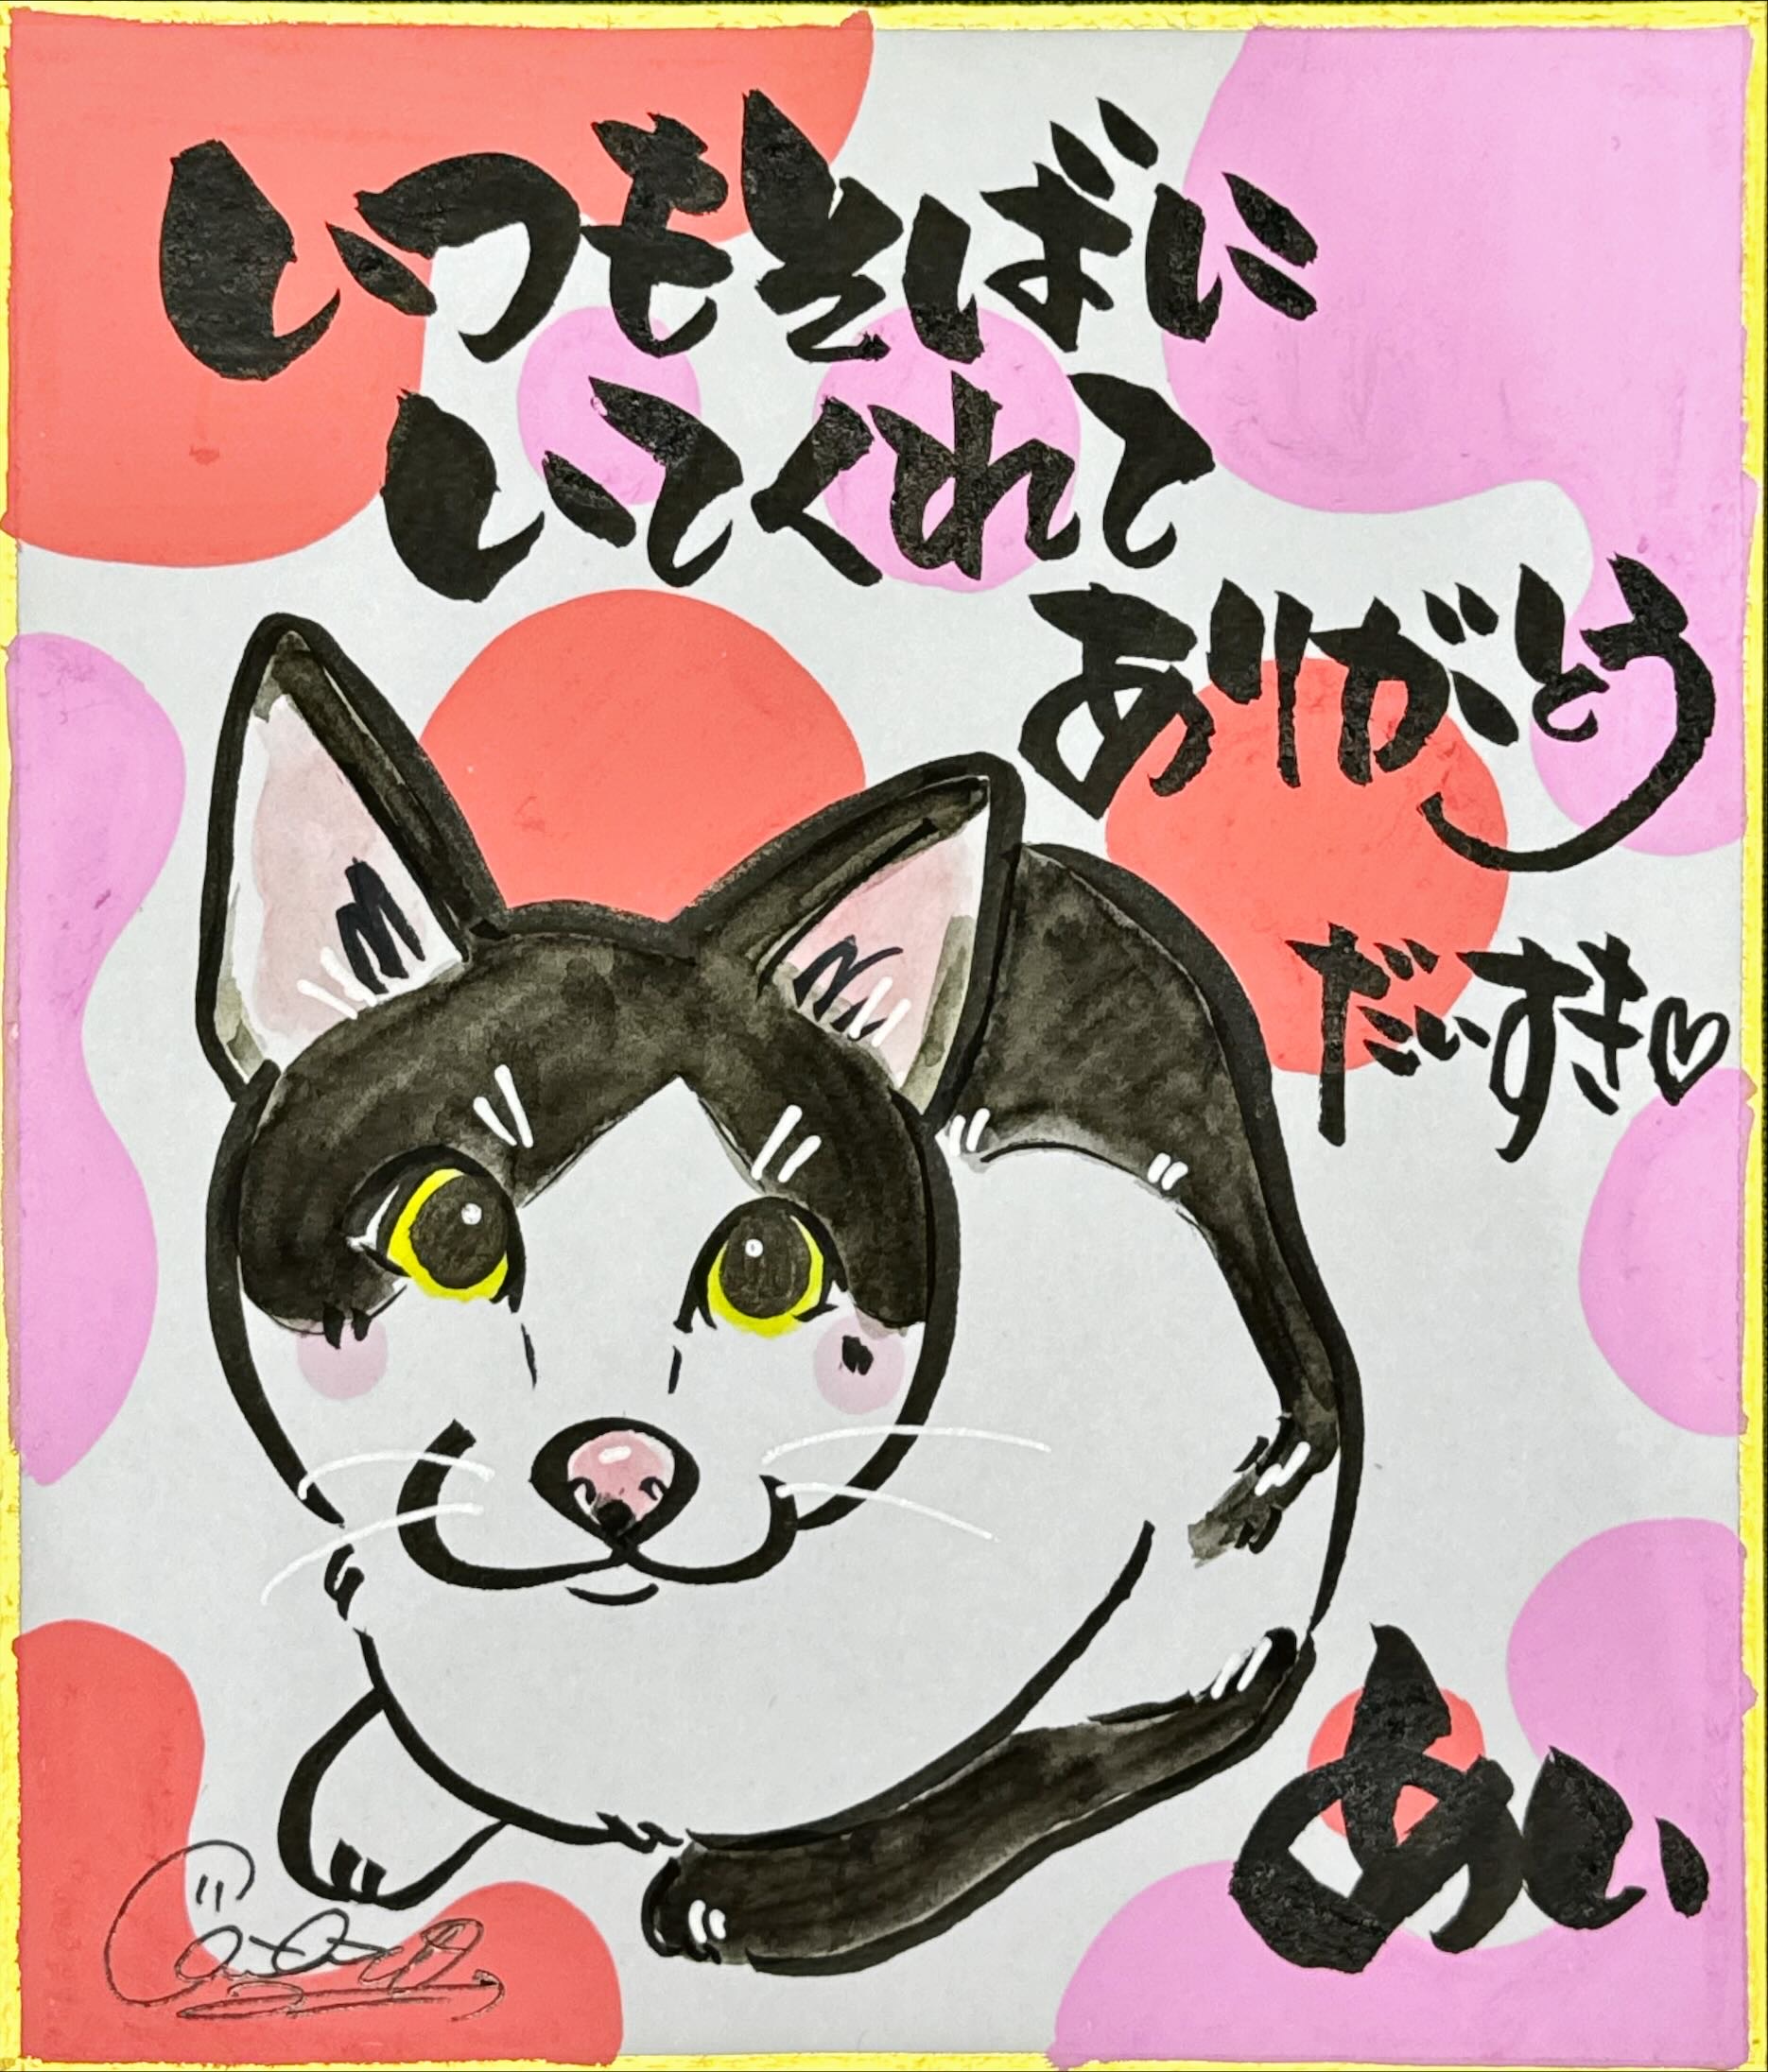 いつもそばに
いてくれて
ありがとう
だいすき♡
あい